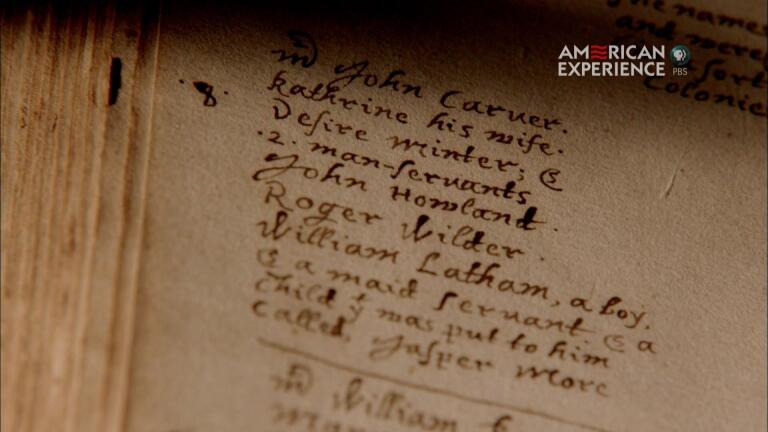 AMERICAN
EXPERIENCE PBS
he names
and were
sort
Colonie
.8.
mr John Carver.
kathrine his wife.
Desire Minter; &
.2. man-servants
John Howland.
Roger Wilder.
William Latham, a boy.
& a maid servant. & a
child yt was put to him
called, Jasper More
mr William